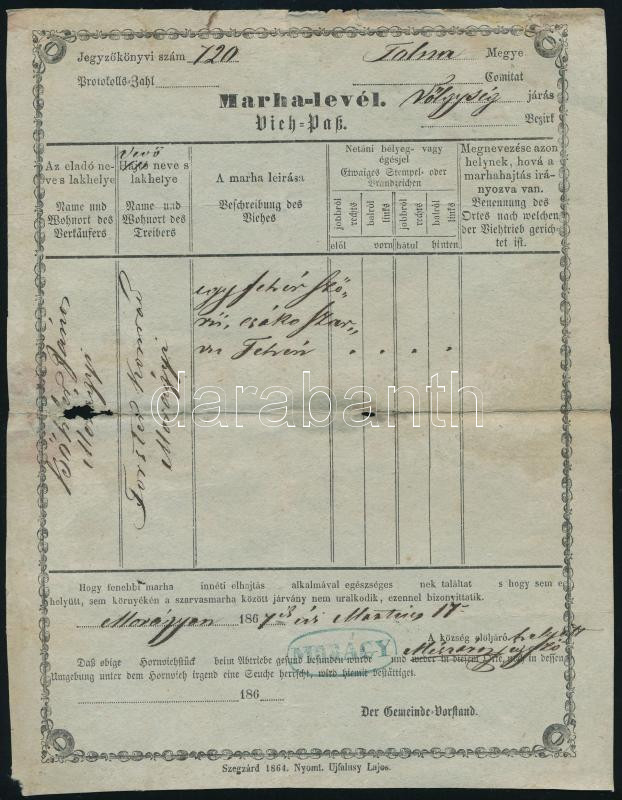 Jegyzőkönyvi szám 720
Tolna Megye
Protokolls-Zahl
Comitat
Marha-levél.
Völgység járás
Vieh-Paß.
Bezirk
Az eladó neve s lakhelye
Name und Wohnort des Verkäufers
Vevő
neve s lakhelye
Name und Wohnort des Treibers
A marha leirása
Beschreibung des Viehes
Netáni bélyeg- vagy égésjel
Etwaiges Stempel- oder Brandzeichen
jobbról rechts
balról links
jobbról rechts
balról links
elől vorn
hátul hinten
Megnevezése azon helynek, hová a marhahajtás irányozva van.
Benennung des Ortes nach welchen der Viehtrieb gerichtet ist.
János
Morágyi
Forster Konrad
Morágyi
egy fehér ször„
rü, csáko szar„
vu Tehén
darabanth
Hogy fenebbi marha innéti elhajtás alkalmával egészséges nek találtat s hogy sem e
helyütt, sem környékén a szarvasmarha között járvány nem uralkodik, ezennel bizonyittatik.
Morágyon 1867 évi Martius 17
A község elöljáró
MORÁGY
Daß obige Hornviehstück beim Abtriebe gesund befunden wurde und weder in diesem Orte noch in dessen
Umgebung unter dem Hornvieh irgend eine Seuche herrscht, wird hiemit bestättiget.
186
Der Gemeinde-Vorstand.
Szegzárd 1864. Nyomt. Ujfalusy Lajos.